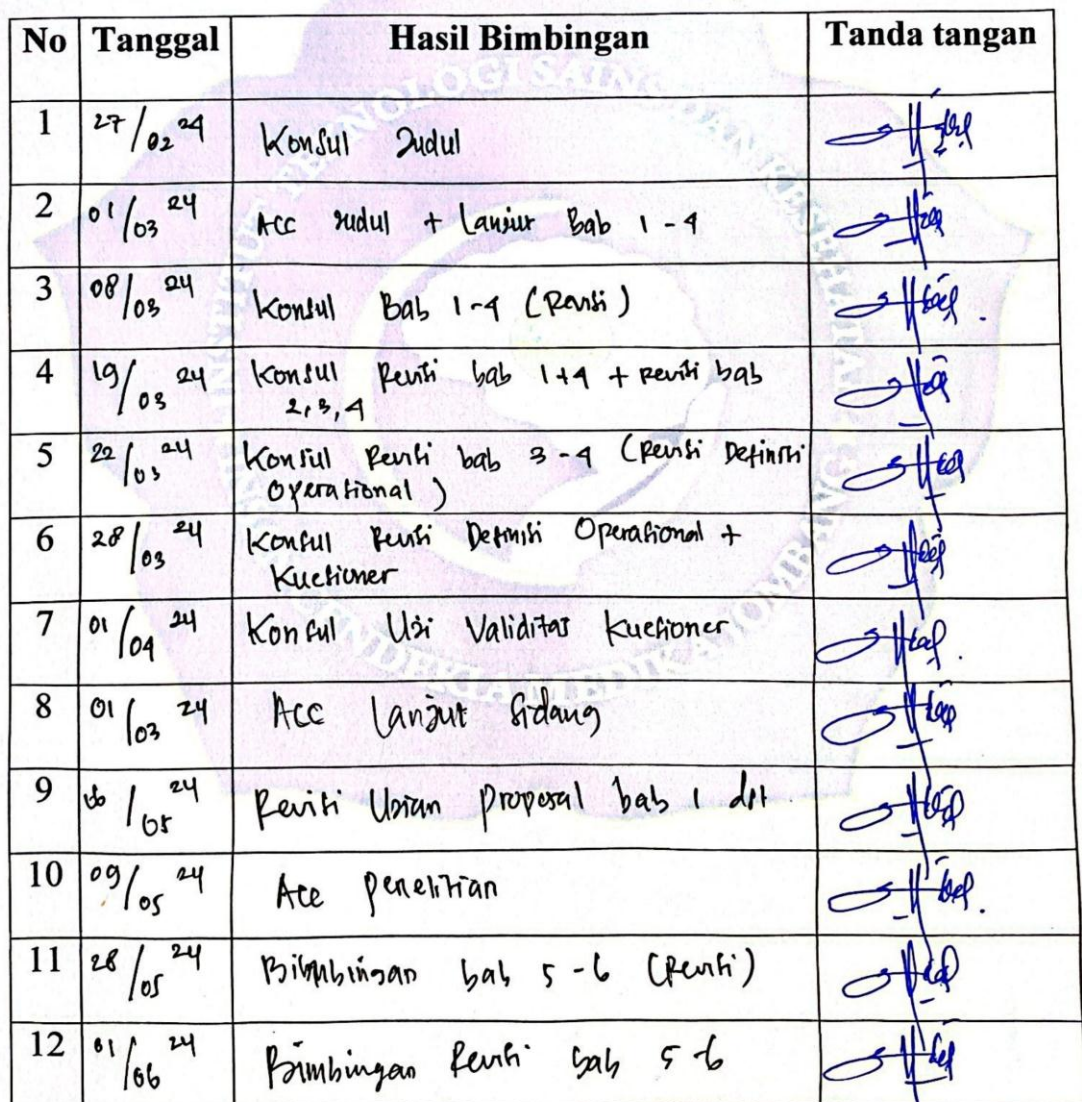 No Tanggal Hasil Bimbingan Tanda tangan
1 27/02 24 Konsul Judul
2 01/03 24 Acc Judul + Lanjut Bab 1 - 4
3 08/03 24 Konsul Bab 1-4 (Revisi)
4 19/03 24 Konsul Revisi bab 1+4 + revisi bab
2,3,4
5 22/03 24 Konsul Revisi bab 3-4 (Revisi Definisi
Operasional)
6 28/03 24 Konsul Revisi Definisi Operasional +
Kuesioner
7 01/04 24 Konsul Uji Validitas Kuesioner
8 01/03 24 Acc Lanjut Sidang
9 06/05 24 Revisi Ujian Proposal bab 1
10 09/05 24 Acc Penelitian
11 28/05 24 Bimbingan bab 5-6 (Revisi)
12 01/06 24 Bimbingan Revisi bab 5-6
INSTITUT TEKNOLOGI SAINS DAN KESEHATAN
INSAN CENDEKIA MEDIKA JOMBANG